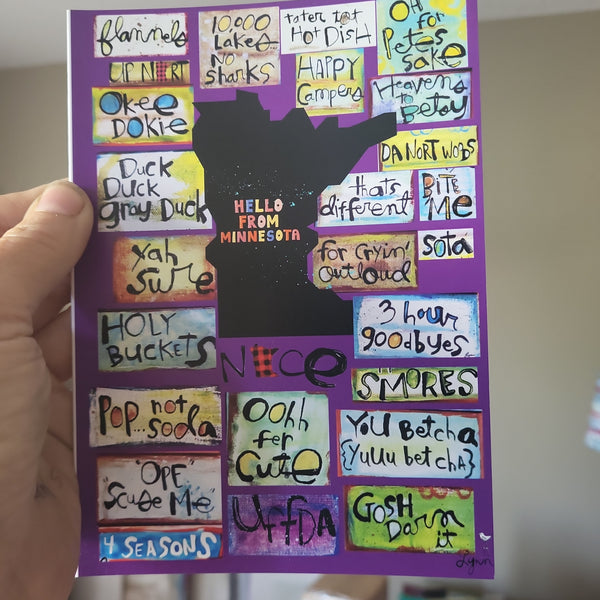 flannels
10,000
Lakes...
No
sharks
tater tot
HOT DISH
OH
for
Petes
sake
UP NORT
HAPPY
Campers
Heavens
to
Betsy
OKee
DOKie
DA NORT WOODS
Duck
Duck
gray Duck
HELLO
FROM
MINNESOTA
thats
different
BITE
Me
Yah
Sure
for Cryin'
outloud
sota
HOLY
BUCKETS
3 hour
goodbyes
NICE
SMORES
POP... not
soda
OOhh
fer
Cute
YOU Betcha
{YUUU betcha}
"OPE"
Scuse Me
UffDA
GOSH
Darn
it
4 SEASONS
Lynn